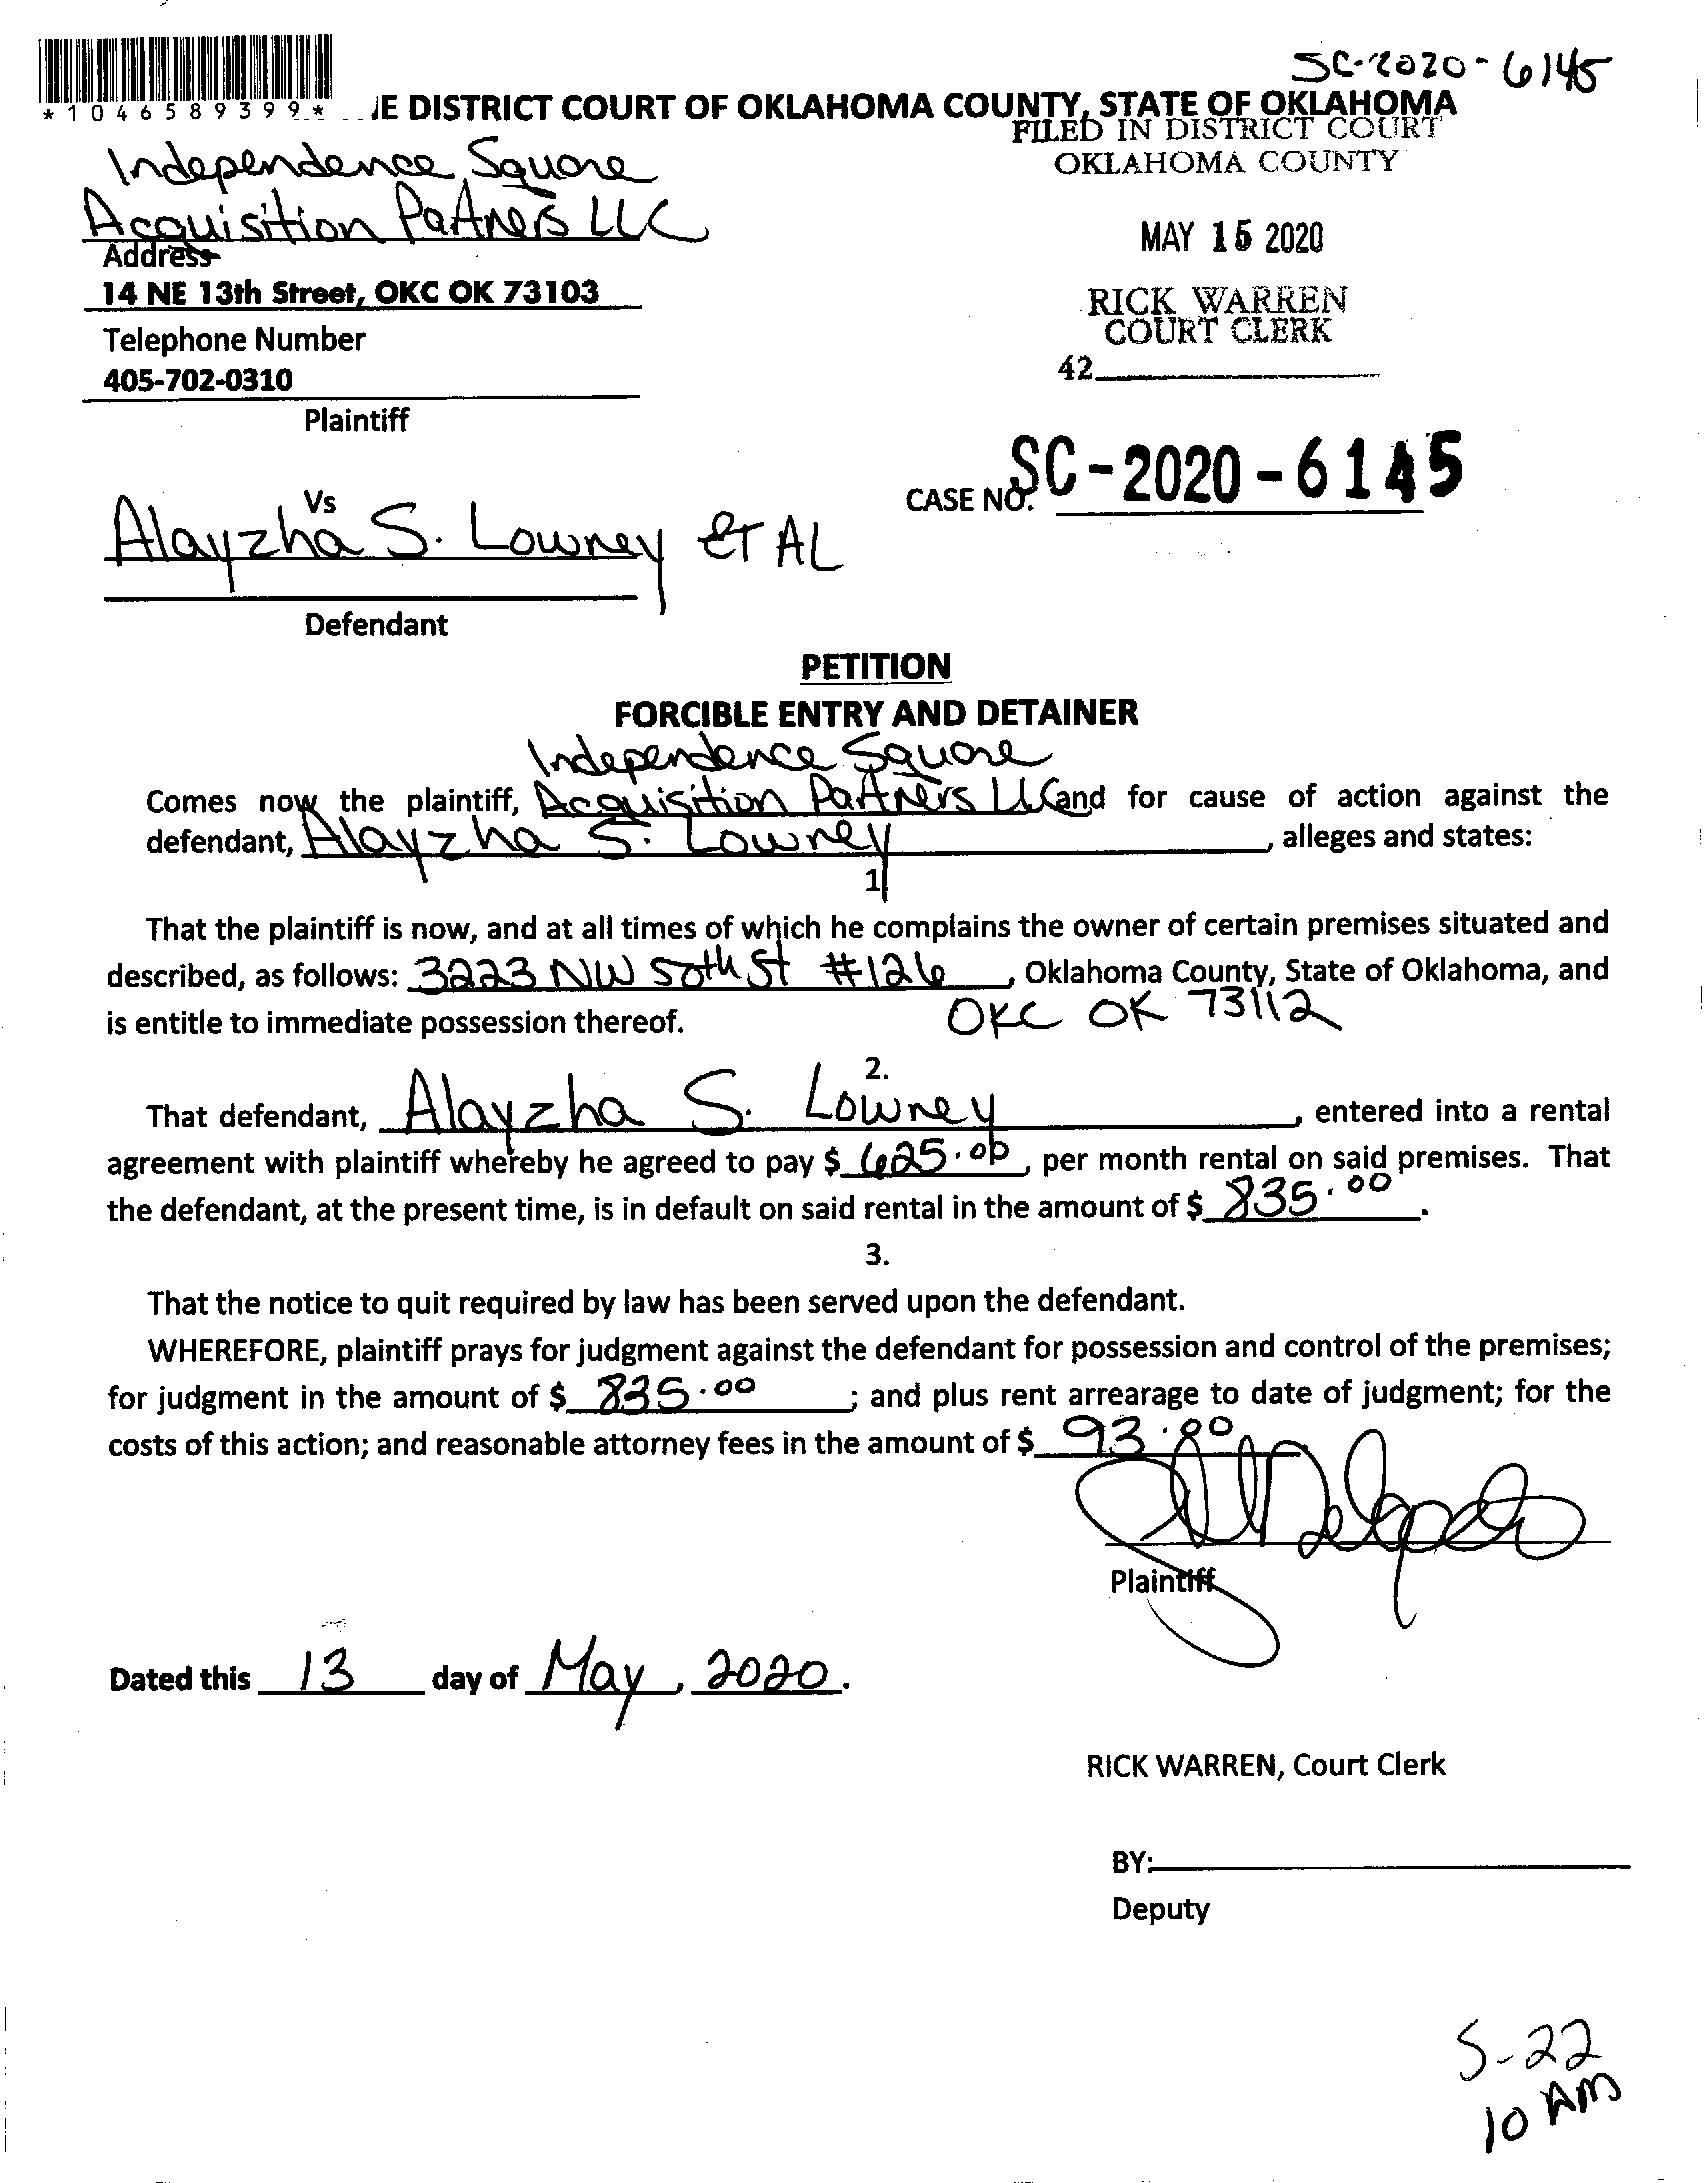 SC-2020-6145
*1046589399*
IE DISTRICT COURT OF OKLAHOMA COUNTY, STATE OF OKLAHOMA
FILED IN DISTRICT COURT
OKLAHOMA COUNTY
Independence Square
Acquisition Partners LLC
Address
MAY 15 2020
14 NE 13th Street, OKC OK 73103
RICK WARREN
COURT CLERK
Telephone Number
42
405-702-0310
Plaintiff
CASE NO. SC-2020-6145
Vs
Alayzha S. Lowney ET AL
Defendant
PETITION
FORCIBLE ENTRY AND DETAINER
Independence Square
Comes now the plaintiff, Acquisition Partners LLC and for cause of action against the
defendant, Alayzha S. Lowney, alleges and states:
1
That the plaintiff is now, and at all times of which he complains the owner of certain premises situated and
described, as follows: 3223 NW 50th St #126, Oklahoma County, State of Oklahoma, and
is entitle to immediate possession thereof. OKC OK 73112
2.
That defendant, Alayzha S. Lowney, entered into a rental
agreement with plaintiff whereby he agreed to pay $ 625.00, per month rental on said premises. That
the defendant, at the present time, is in default on said rental in the amount of $ 835.00.
3.
That the notice to quit required by law has been served upon the defendant.
WHEREFORE, plaintiff prays for judgment against the defendant for possession and control of the premises;
for judgment in the amount of $ 835.00; and plus rent arrearage to date of judgment; for the
costs of this action; and reasonable attorney fees in the amount of $ 93.00
Plaintiff
Dated this 13 day of May, 2020.
RICK WARREN, Court Clerk
BY:
Deputy
5-22
10 AM